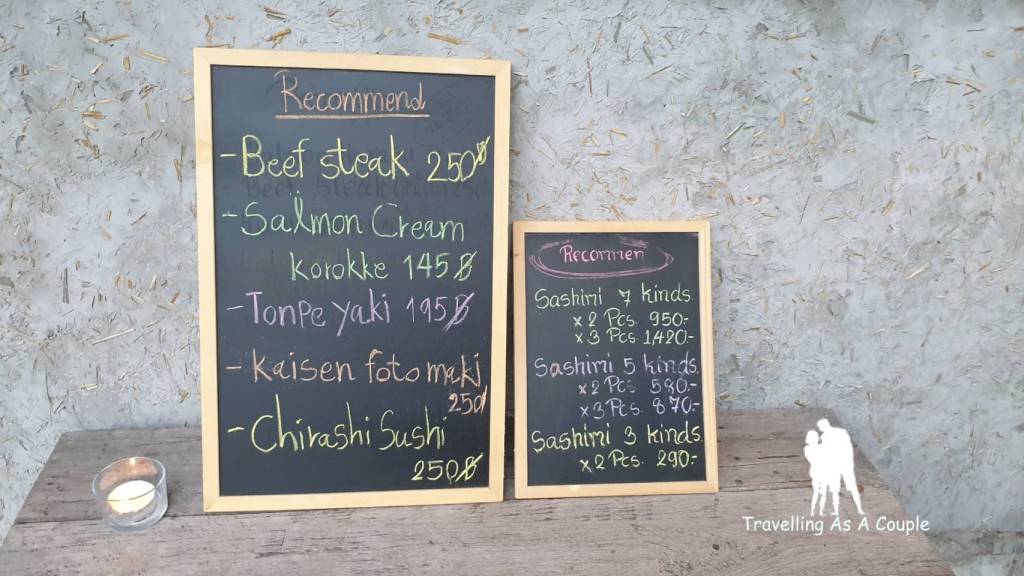 Recommend
- Beef steak 250฿
- Salmon Cream
Korokke 145฿
- Tonpe yaki 195฿
- Kaisen foto maki
250
- Chirashi Sushi
250฿
Recommen
Sashimi 7 kinds.
x 2 Pcs. 950.-
x 3 Pcs. 1,420.-
Sashimi 5 kinds.
x 2 Pcs. 580.-
x 3 Pcs. 870.-
Sashimi 3 kinds.
x 2 Pcs. 290.-
Travelling As A Couple